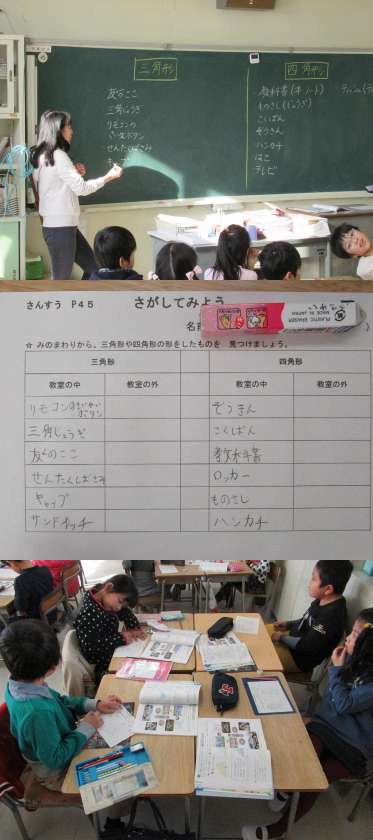 三角形
友のここ
三角じょうぎ
リモコンの
せんたくばさみ
キャップ
四角形
教科書(本 ノート)
ものさし(じょうぎ)
こくばん
ぞうきん
ハンカチ
はこ
テレビ
さんすう P45 さがしてみよう
名前
PLASTIC ERASER
MADE IN JAPAN
☆ みのまわりから、三角形や四角形の形をしたものを 見つけましょう。
三角形 四角形
教室の中 教室の外 教室の中 教室の外
リモコンの ボタン ぞうきん
三角じょうぎ こくばん
友のここ 教科書
せんたくばさみ ロッカー
キャップ ものさし
サンドイッチ ハンカチ